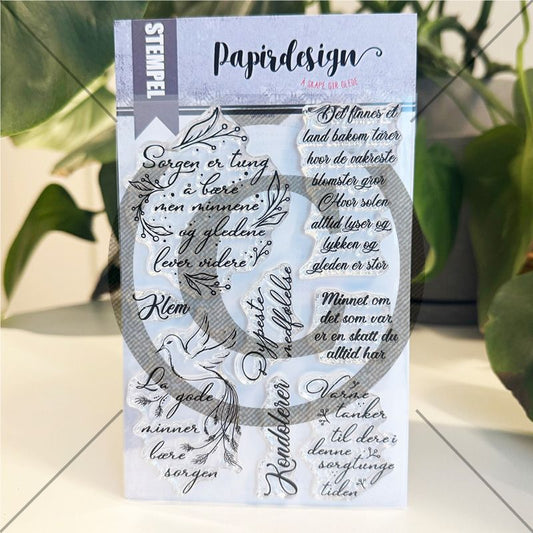 STEMPEL
Papirdesign
Å SKAPE GIR GLEDE
Sorgen er tung
å bære
men minnene
og gledene
lever videre
Det finnes et
land bakom tårer
hvor de vakreste
blomster gror
Hvor solen
alltid lyser og
lykken og
gleden er stor
Klem
Dypeste
medfølelse
Minnet om
det som var
er en skatt du
alltid har
La gode
minner
bære
sorgen
Kondolerer
Varme
tanker
til dere i
denne
sorgtunge
tiden